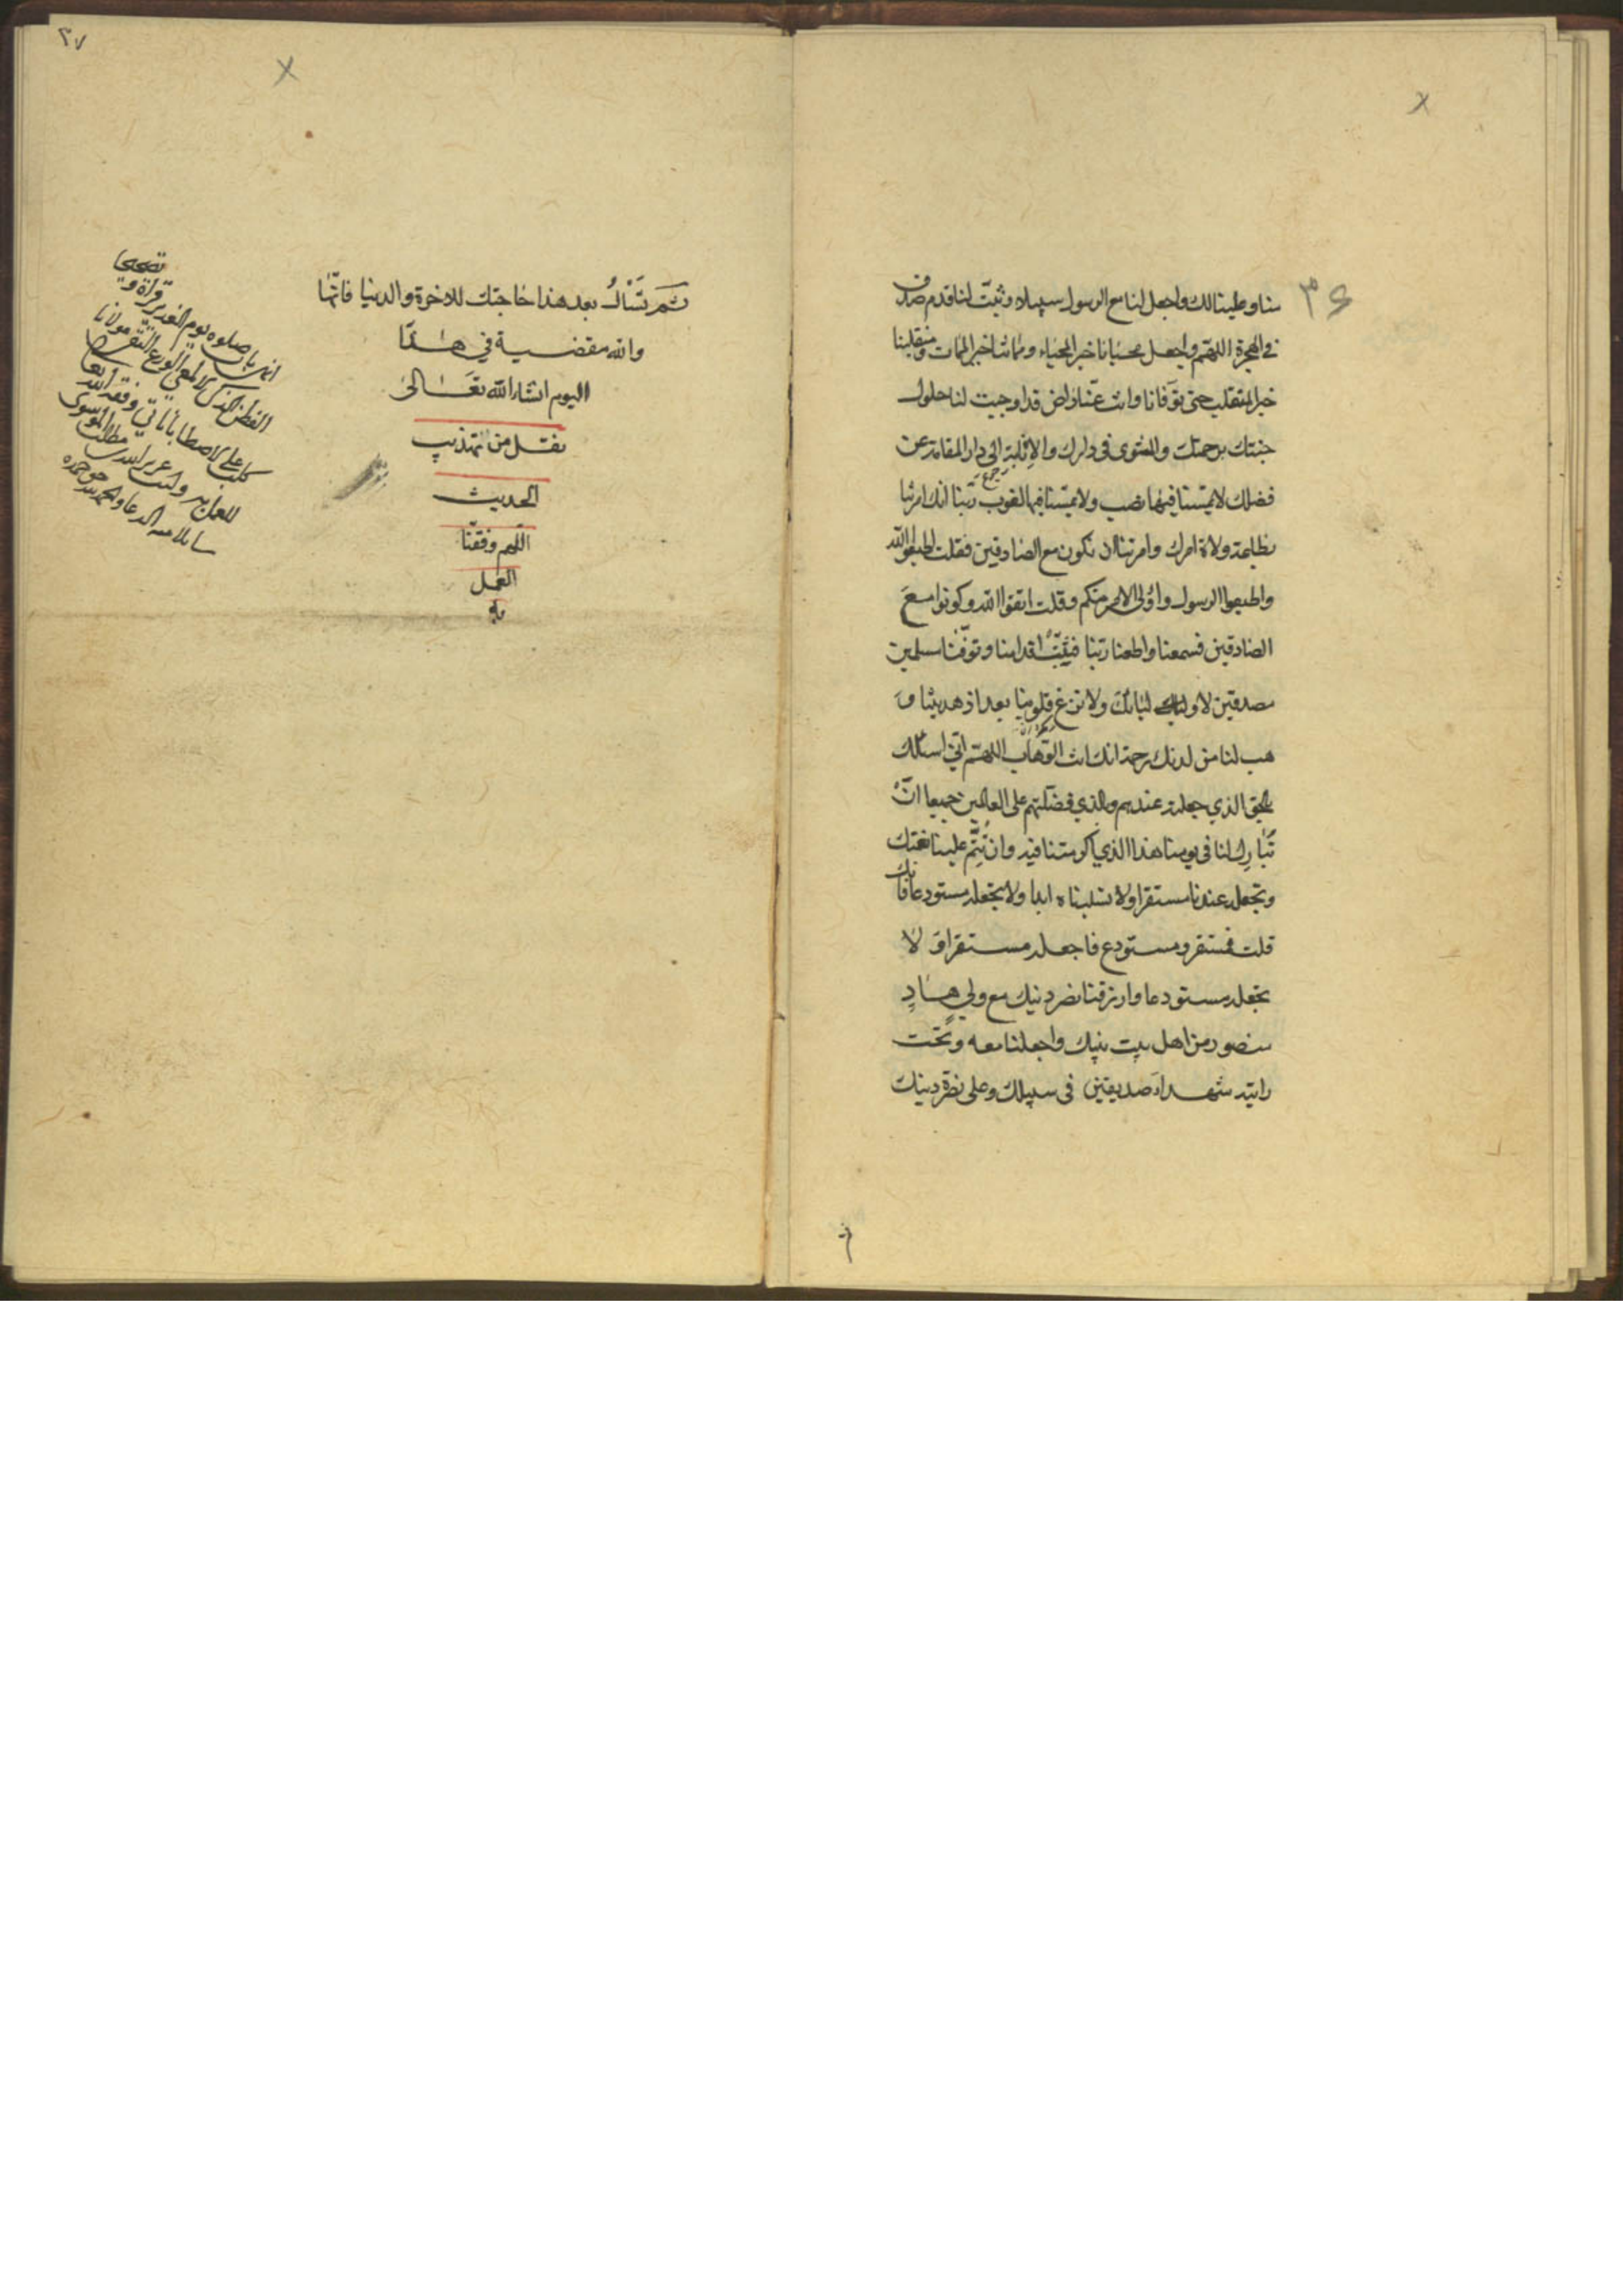 ٣٦
منا وعلينا لك واجعل لنا مع الرسول سبيلا وثبت لنا قدم صدق
في الهجرة اللهم واجعل محيانا خير المحياء ومماتنا خير الممات ومنقلبنا
خير المنقلب حتى توفانا وانت عنا راض قد اوجبت لنا حلول
جنتك برحمتك والمثوى في دارك والاقلبة الى دار المقامة من
فضلك لا يمسنا فيها نصب ولا يمسنا فيها لغوب ربنا انك امرتنا
بطاعة ولاة امرك وامرتنا ان نكون مع الصادقين فقلت اطيعوا الله
واطيعوا الرسول واولى الامر منكم وقلت اتقوا الله وكونوا مع
الصادقين فسمعنا واطعنا ربنا فثبت اقدامنا وتوفنا مسلمين
مصدقين لاوليائك ولا تزغ قلوبنا بعد اذ هديتنا و
هب لنا من لدنك رحمة انك انت الوهاب اللهم اني اسئلك
بالحق الذي جعلته عندهم وبالذي فضلتهم على العالمين جميعا ان
تبارك لنا في يومنا هذا الذي اكرمتنا فيه وان تتم علينا نعمتك
وتجعله عندنا مستقرا ولا تسلبناه ابدا ولا تجعله مستودعا فانك
قلت فمستقر ومستودع فاجعله مستقرا و لا
تجعله مستودعا وارزقنا نصر دينك مع ولي هاد
منصور من اهل بيت نبيك واجعلنا معه و تحت
رايته شهداء صديقين في سبيلك وعلى نصرة دينك
ثم
٣٧
ثم تسأل بعد هذا حاجتك للاخرة والدنيا فانها
والله مقضية في هذا
اليوم انشاء الله تعالى
نقل من تهذيب
الحديث
اللهم وفقنا
العمل
به
صلوة يوم الغدير قراءة و
الورع التقي مولانا
كلب علي وفقه الله
الموسوي
الدعاء